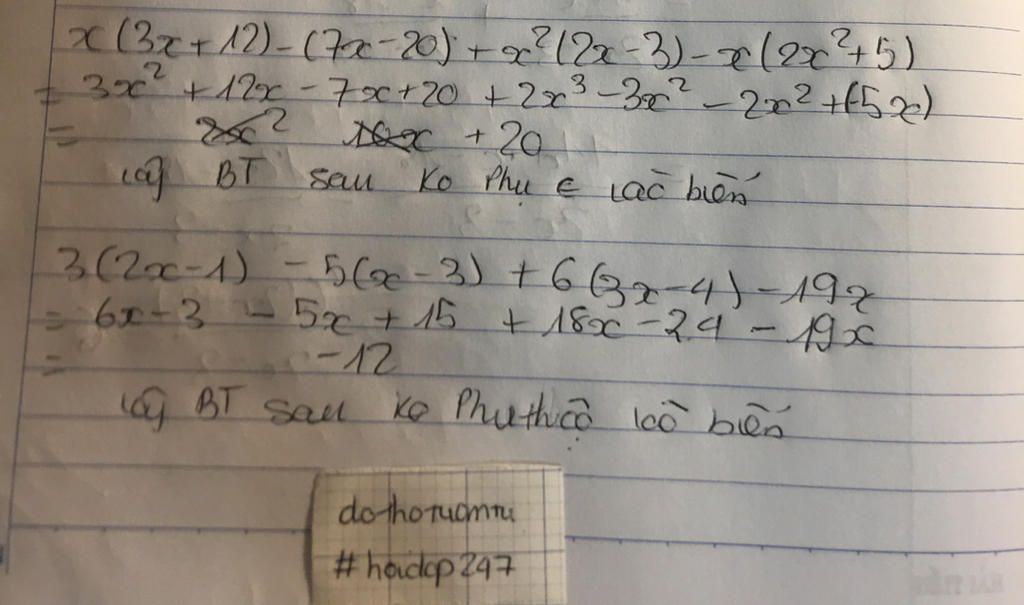 x(3x+12)-(7x-20)+x²(2x-3)-x(2x²+5)
= 3x² +12x - 7x+20 +2x³ -3x² - 2x² +(-5x)
= +20
BT sau Ko Phụ ∈ biến
3(2x-1) - 5(x-3) + 6(3x-4) - 19x
= 6x-3 - 5x + 15 + 18x - 24 - 19x
= -12
BT sau Ko Phụ biến
dothotuantu
#hoidap247